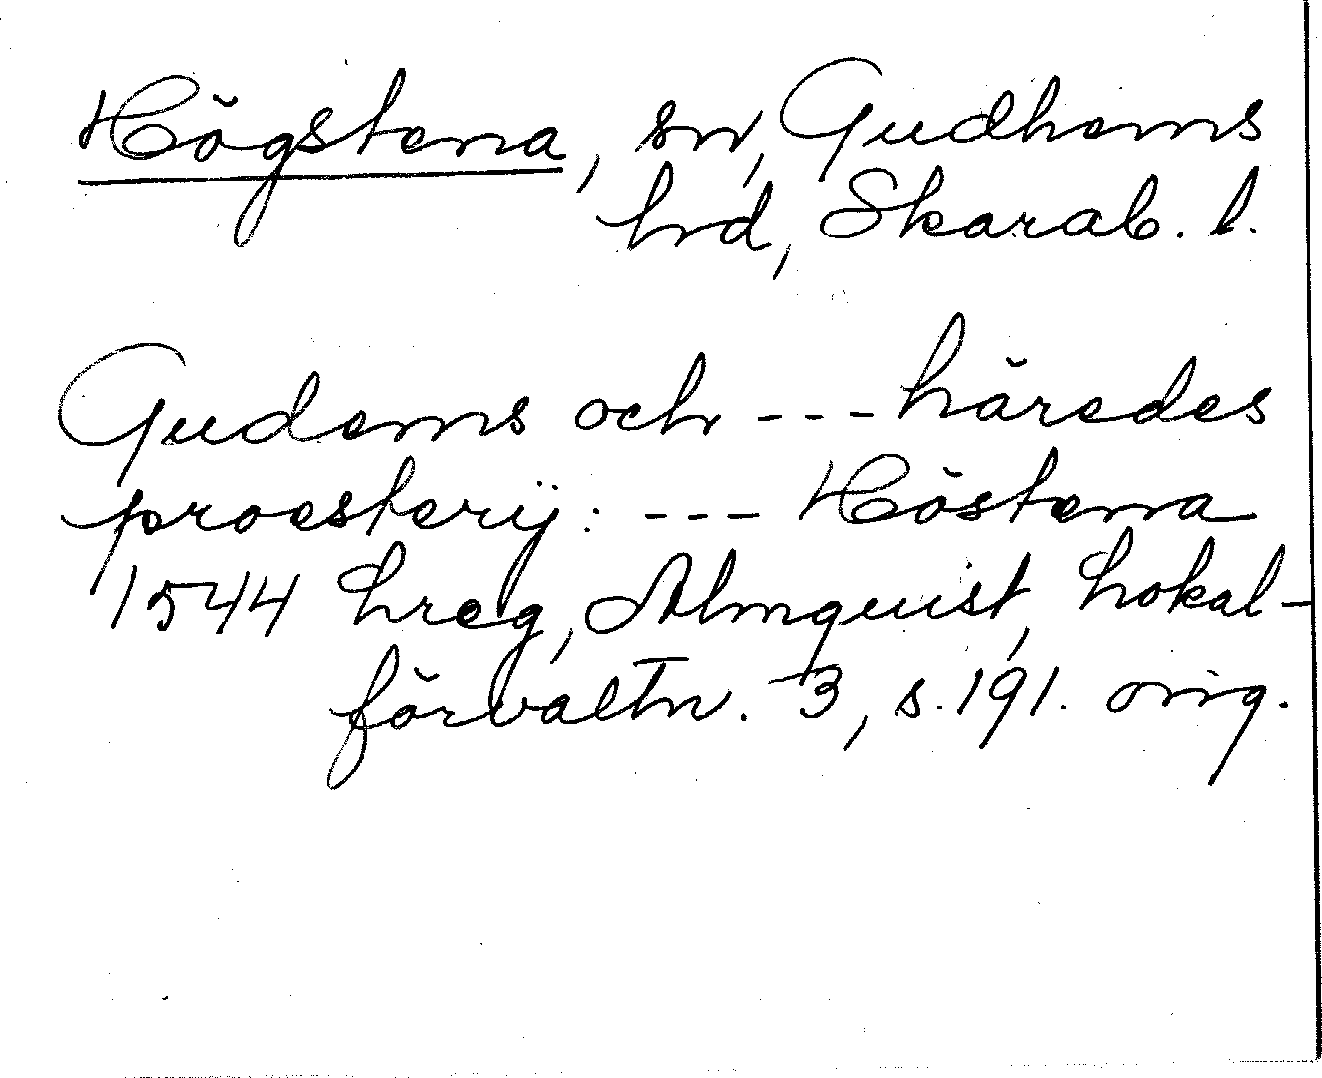 Högstena, sn, Gudhems
hd, Skarab. l.
Gudems och --- häredes
proesterij: --- Höstena
1544 hreg, Almquist, Lokal-
förvaltn. 3, s. 191. orig.